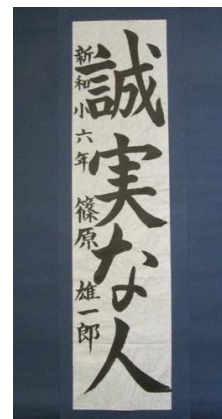 誠実な人
新和小六年 篠原 雄一郎